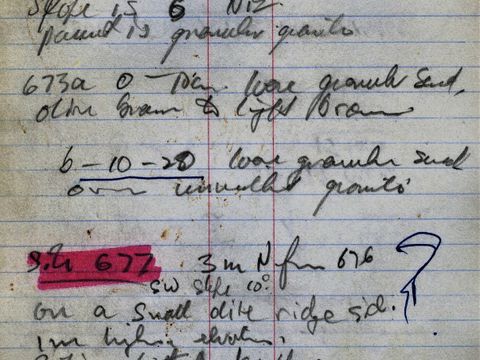 Slope is 6 N12
parent is granular granite
673a 0-10cm loose granular sand,
olive brown to light brown
b -10-20 loose granular sand
over unweathered granite
Site 677 3m N from 676 ?
SW slope 10°
on a small dike ridge side.
1m higher elevation,